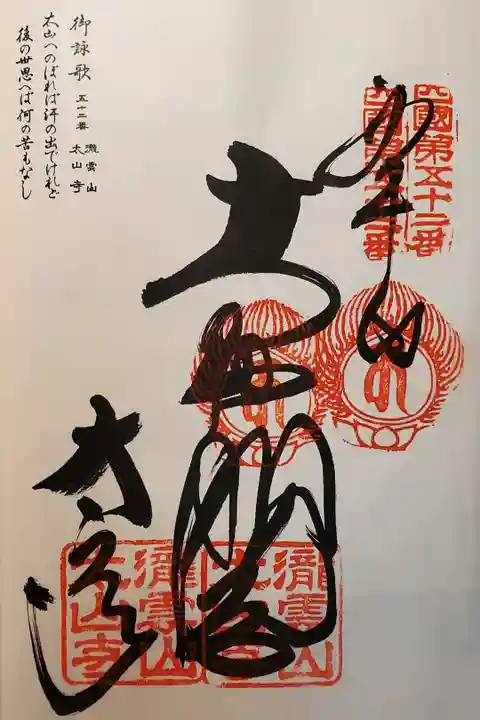 奉納
四國第五十二番
四國第五十二番
瀧雲山
太山寺
瀧雲山
太山寺
太山寺
御詠歌 五十二番 瀧雲山
太山寺
太山へのぼれば汗の出でけれど
後の世思へば何の苦もなし